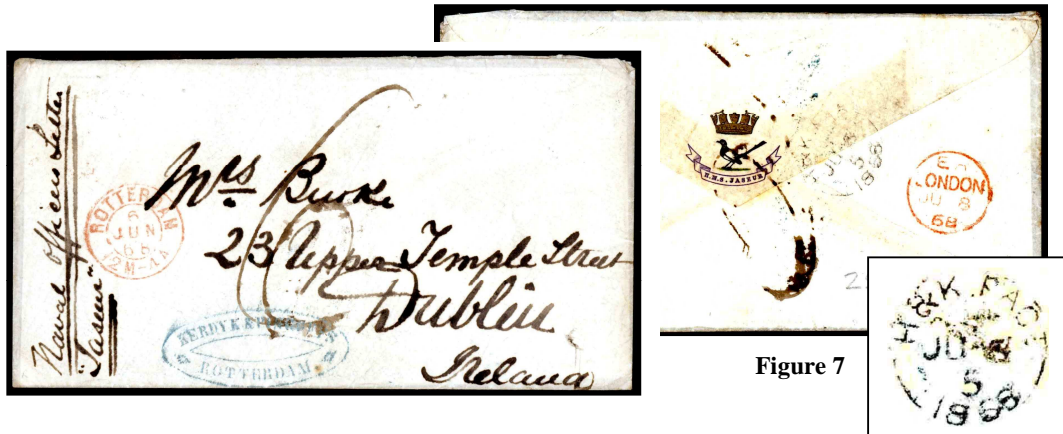 Naval Officers Letter
"Jaseur"
ROTTERDAM
6
JUN
68
12M-4A
Mrs Burke
23 Upper Temple Street
Dublin
Ireland
6
ROTTERDAM
H.M.S. JASEUR
JU
5
1868
LONDON
JU 8
68
Figure 7
H & K PACT
JU 8
5
1868